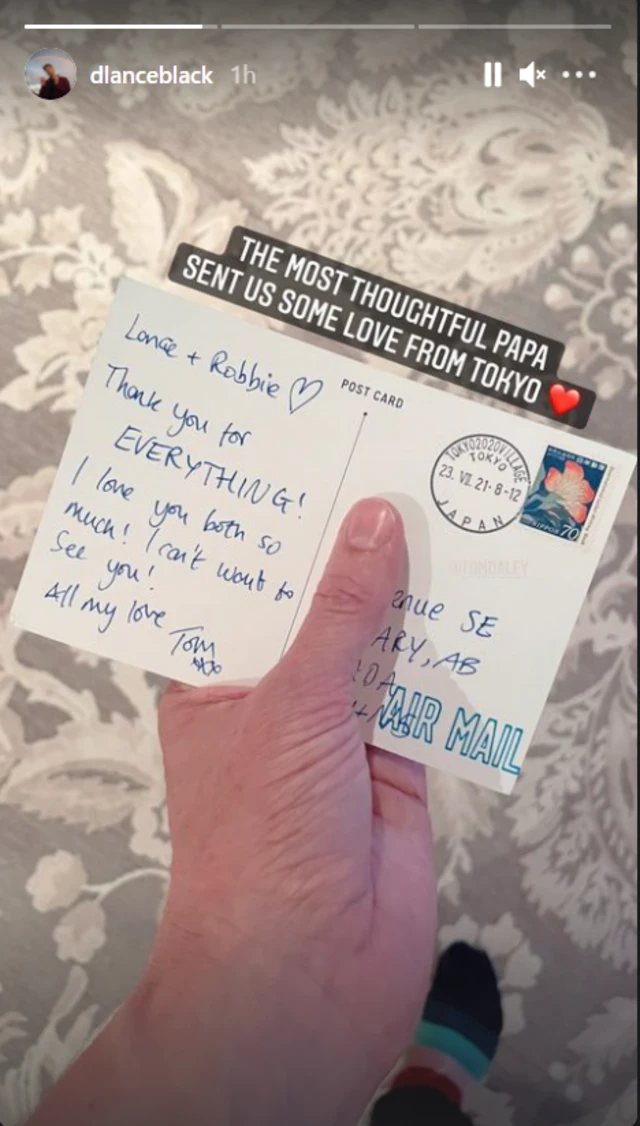 dlanceblack 1h
THE MOST THOUGHTFUL PAPA
SENT US SOME LOVE FROM TOKYO ❤️
Lance + Robbie ♡
Thank you for
EVERYTHING!
I love you both so
much! I can't wait to
see you!
All my love
Tom
xxx
POST CARD
TOKYO2020VILLAGE
TOKYO
23. VII. 21. 8-12
JAPAN
NIPPON 70
@TOMDALEY
enue SE
ARY, AB
DA
AIR MAIL